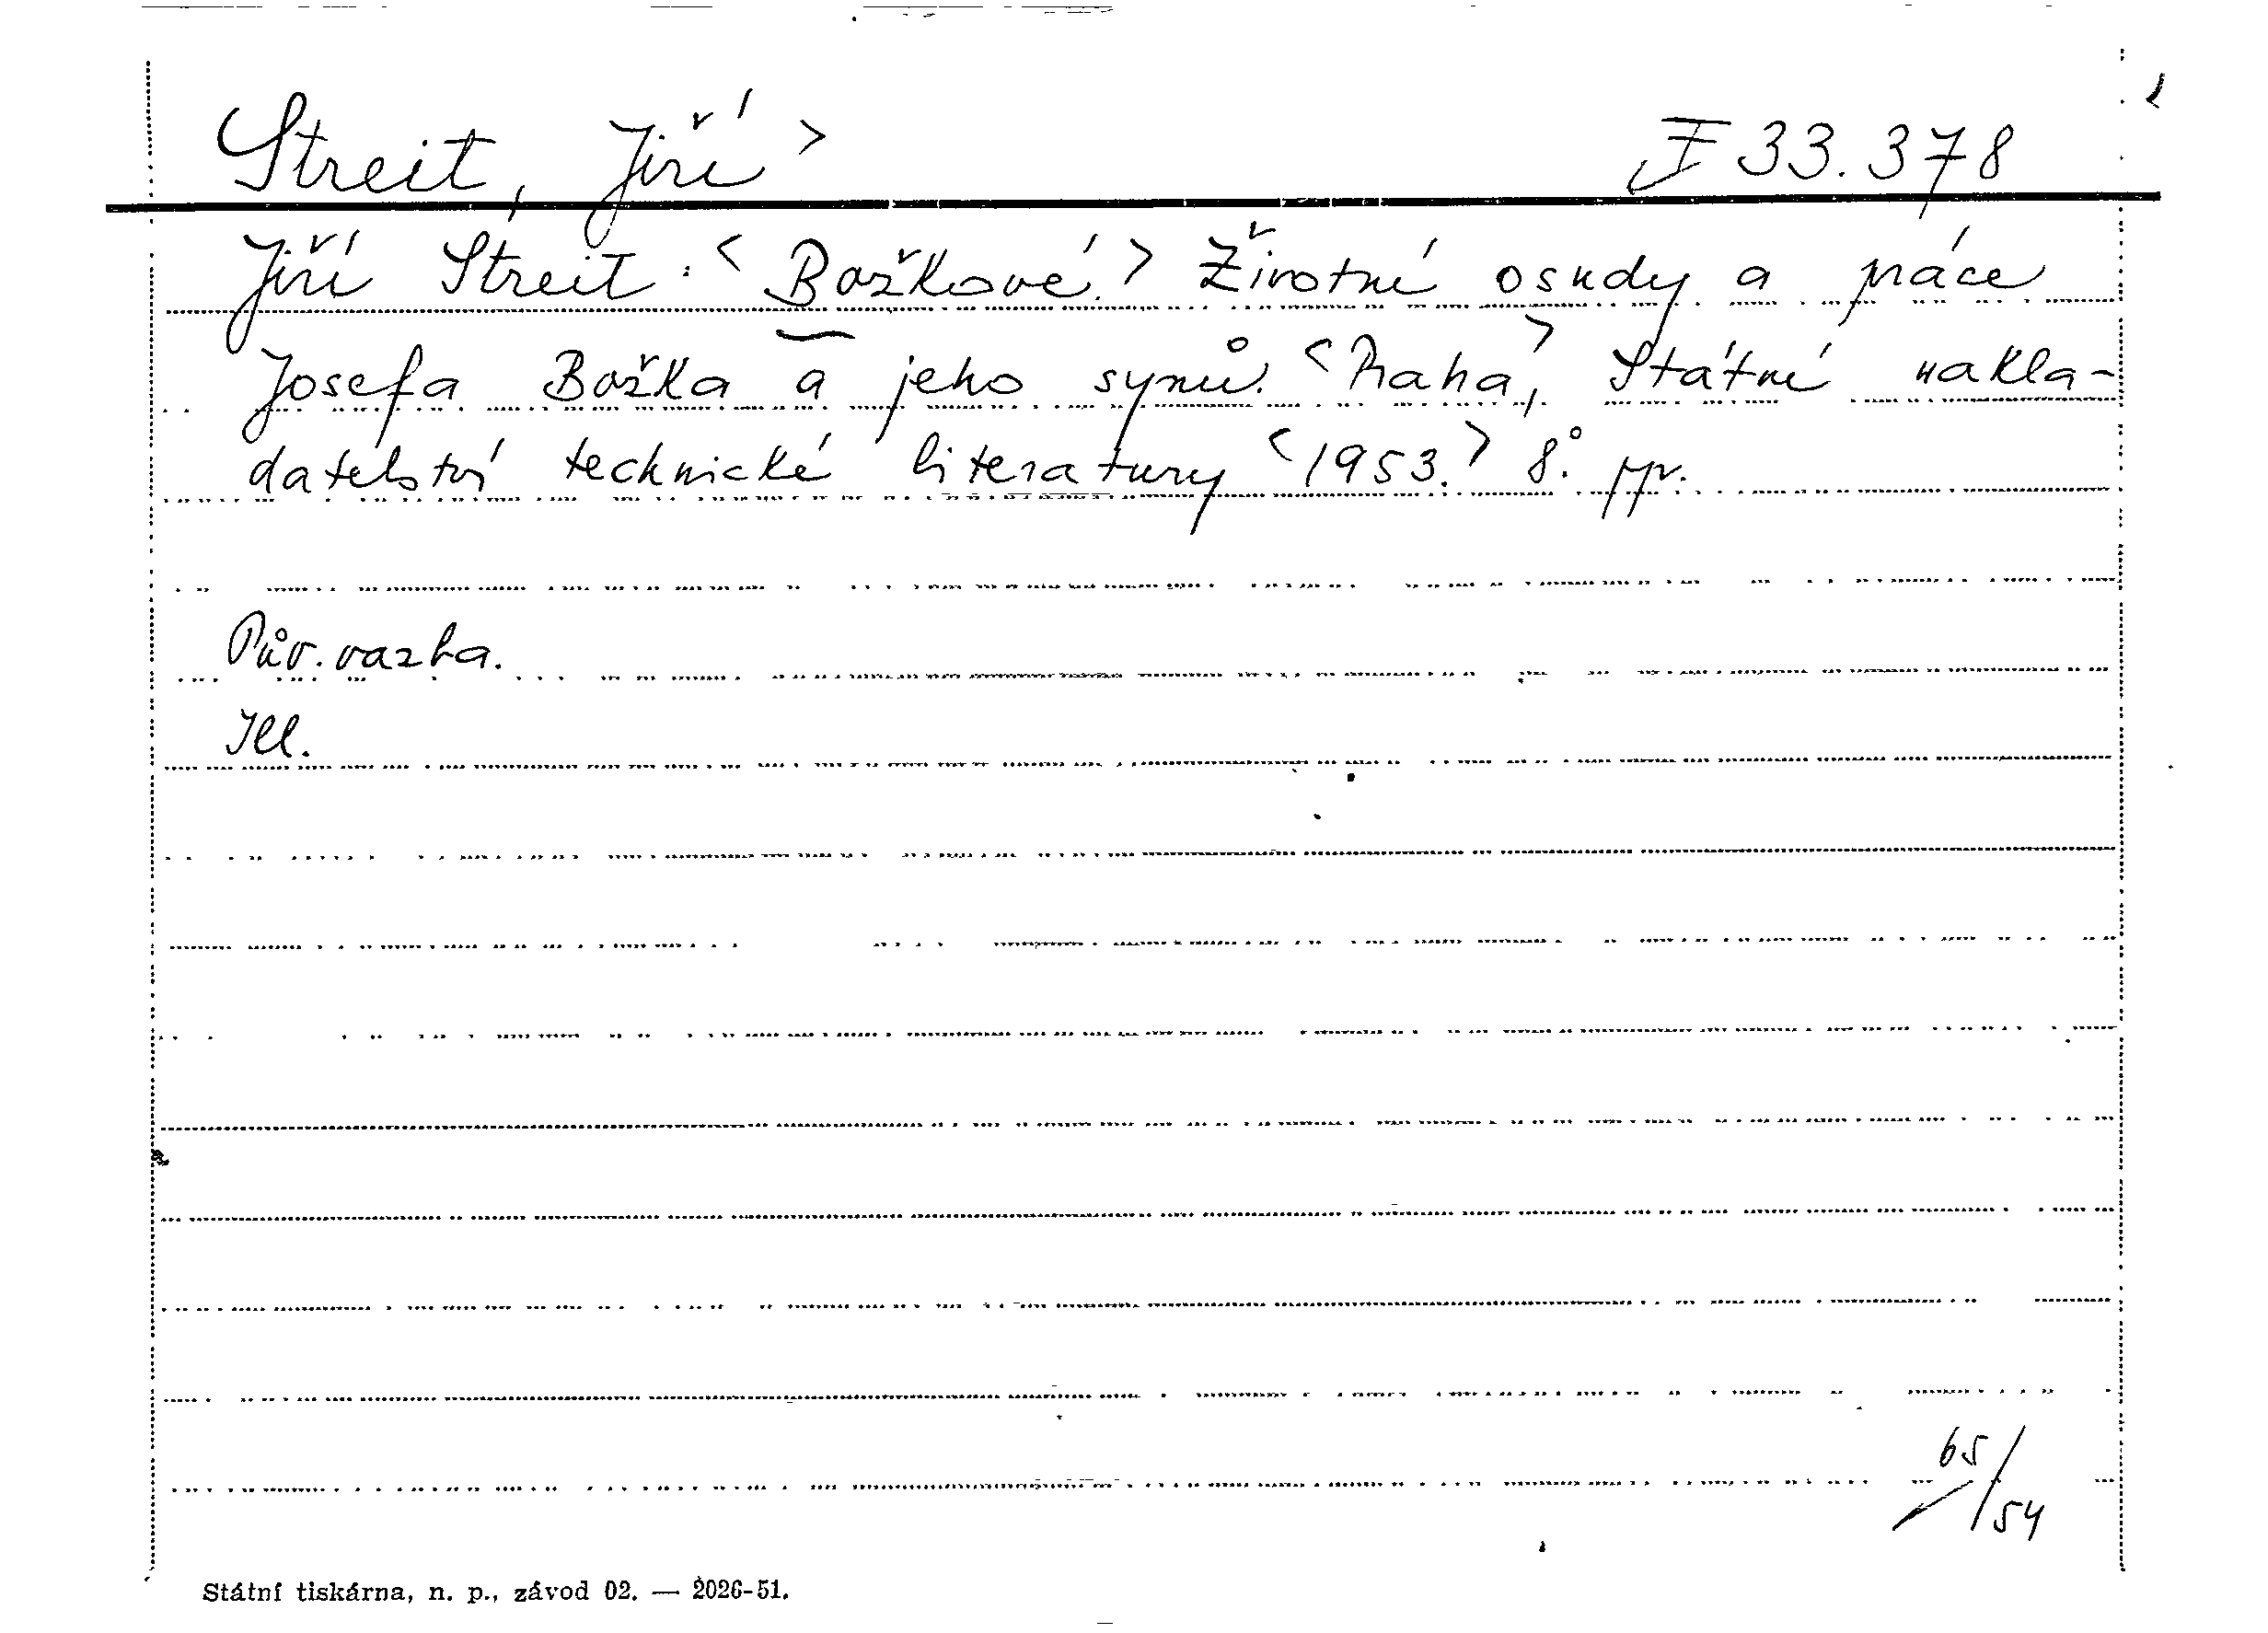 Streit, Jiří > I 33.378
Jiří Streit: <Božkové.> Životní osudy a práce
Josefa Božka a jeho synů. <Praha,> Státní nakla-
datelství technické literatury <1953.> 8°. pp.
Pův. vazba.
Ill.
65/54
Státní tiskárna, n. p., závod 02. — 2026-51.